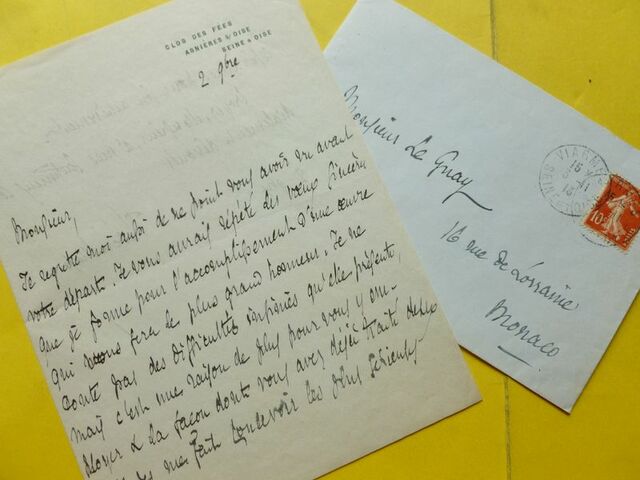 CLOS DES FÉES
ASNIÈRES S/OISE
SEINE & OISE
2 9bre
Monsieur,
Je regrette moi aussi de ne point vous avoir vu avant
votre départ. Je vous aurais répété les vœux sincères
que je forme pour l'accomplissement d'une œuvre
qui vous fera le plus grand honneur. Je ne
doute pas des difficultés infinies qu'elle présente,
mais c'est une raison de plus pour vous y em-
ployer & la façon dont vous avez déjà traité
me fait concevoir les plus sérieux
Monsieur Le Guay
16 rue de Lorraine
Monaco
VIARMES
SEINE-ET-OISE
15
10